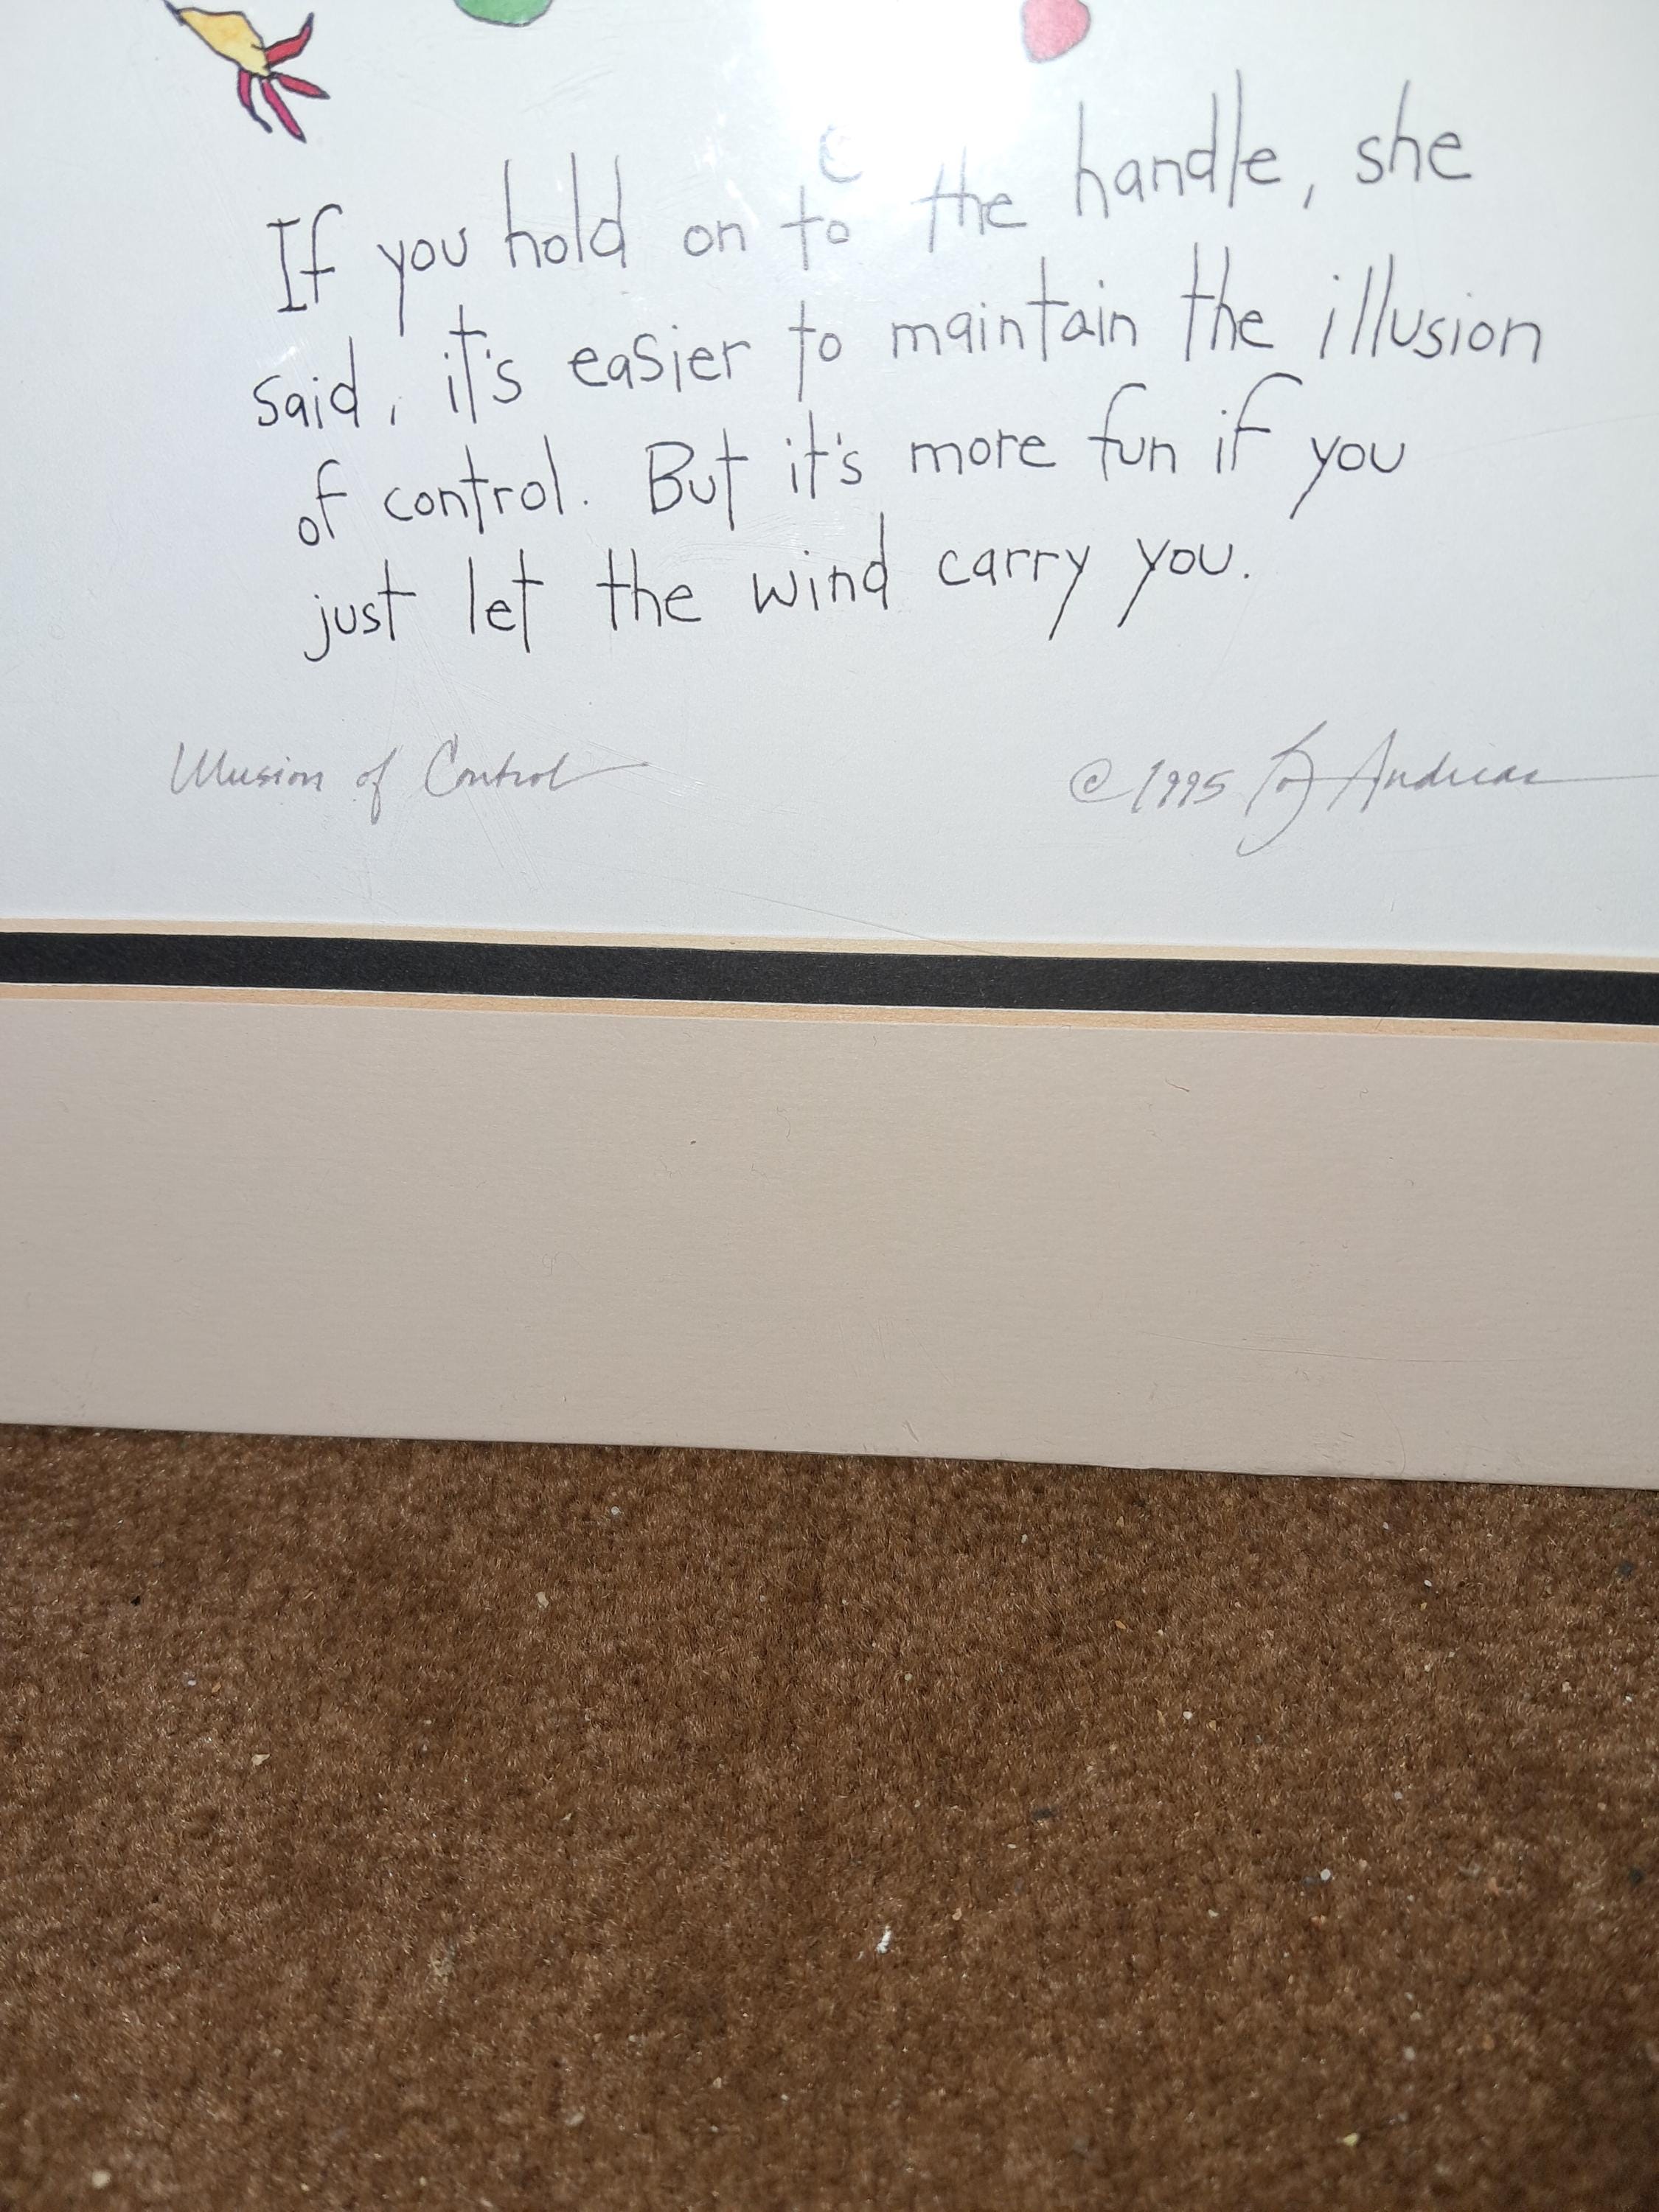 If you hold on to the handle, she
said, it's easier to maintain the illusion
of control. But it's more fun if you
just let the wind carry you.
Illusion of Control
© 1995 Andreas